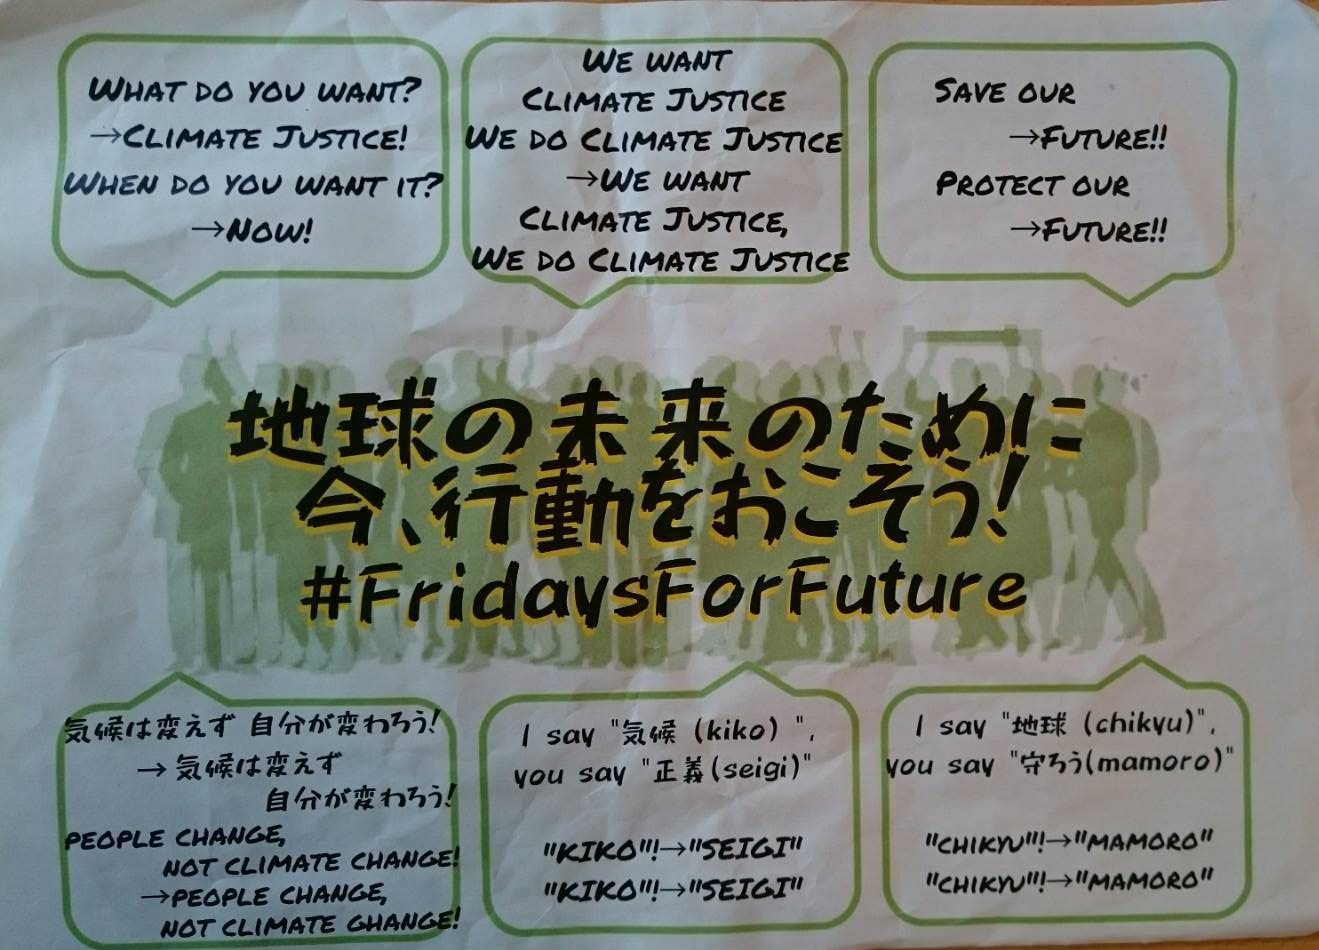 WHAT DO YOU WANT?
→CLIMATE JUSTICE!
WHEN DO YOU WANT IT?
→NOW!
WE WANT
CLIMATE JUSTICE
WE DO CLIMATE JUSTICE
→WE WANT
CLIMATE JUSTICE,
WE DO CLIMATE JUSTICE
SAVE OUR
→FUTURE!!
PROTECT OUR
→FUTURE!!
地球の未来のために
今、行動をおこそう!
#FridaysForFuture
気候は変えず 自分が変わろう!
→ 気候は変えず
自分が変わろう!
PEOPLE CHANGE,
NOT CLIMATE CHANGE!
→PEOPLE CHANGE,
NOT CLIMATE CHANGE!
I say "気候 (kiko) ",
you say "正義(seigi)"
"KIKO"!→"SEIGI"
"KIKO"!→"SEIGI"
I say "地球 (chikyu)",
you say "守ろう(mamoro)"
"CHIKYU"!→"MAMORO"
"CHIKYU"!→"MAMORO"